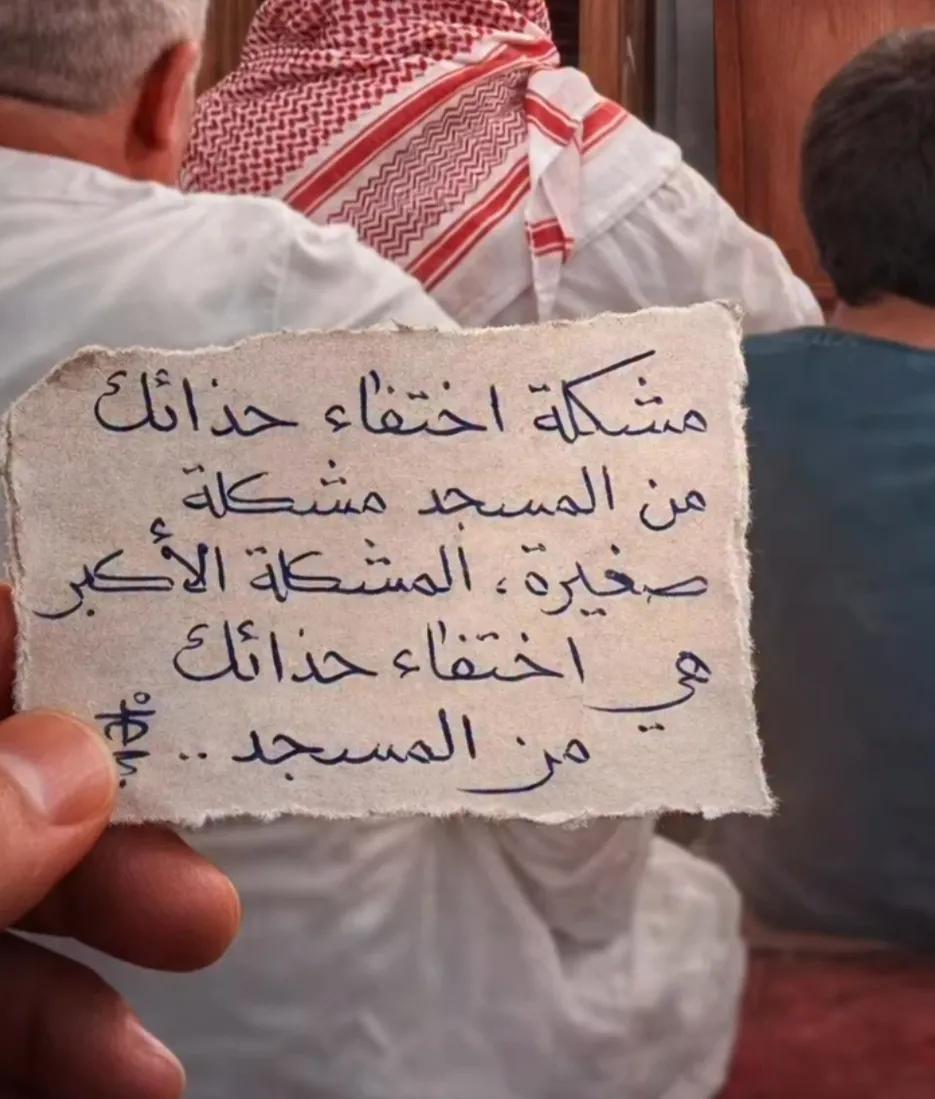 مشكلة اختفاء حذائك
من المسجد مشكلة
صغيرة، المشكلة الأكبر
هي اختفاء حذائك
من المسجد ..